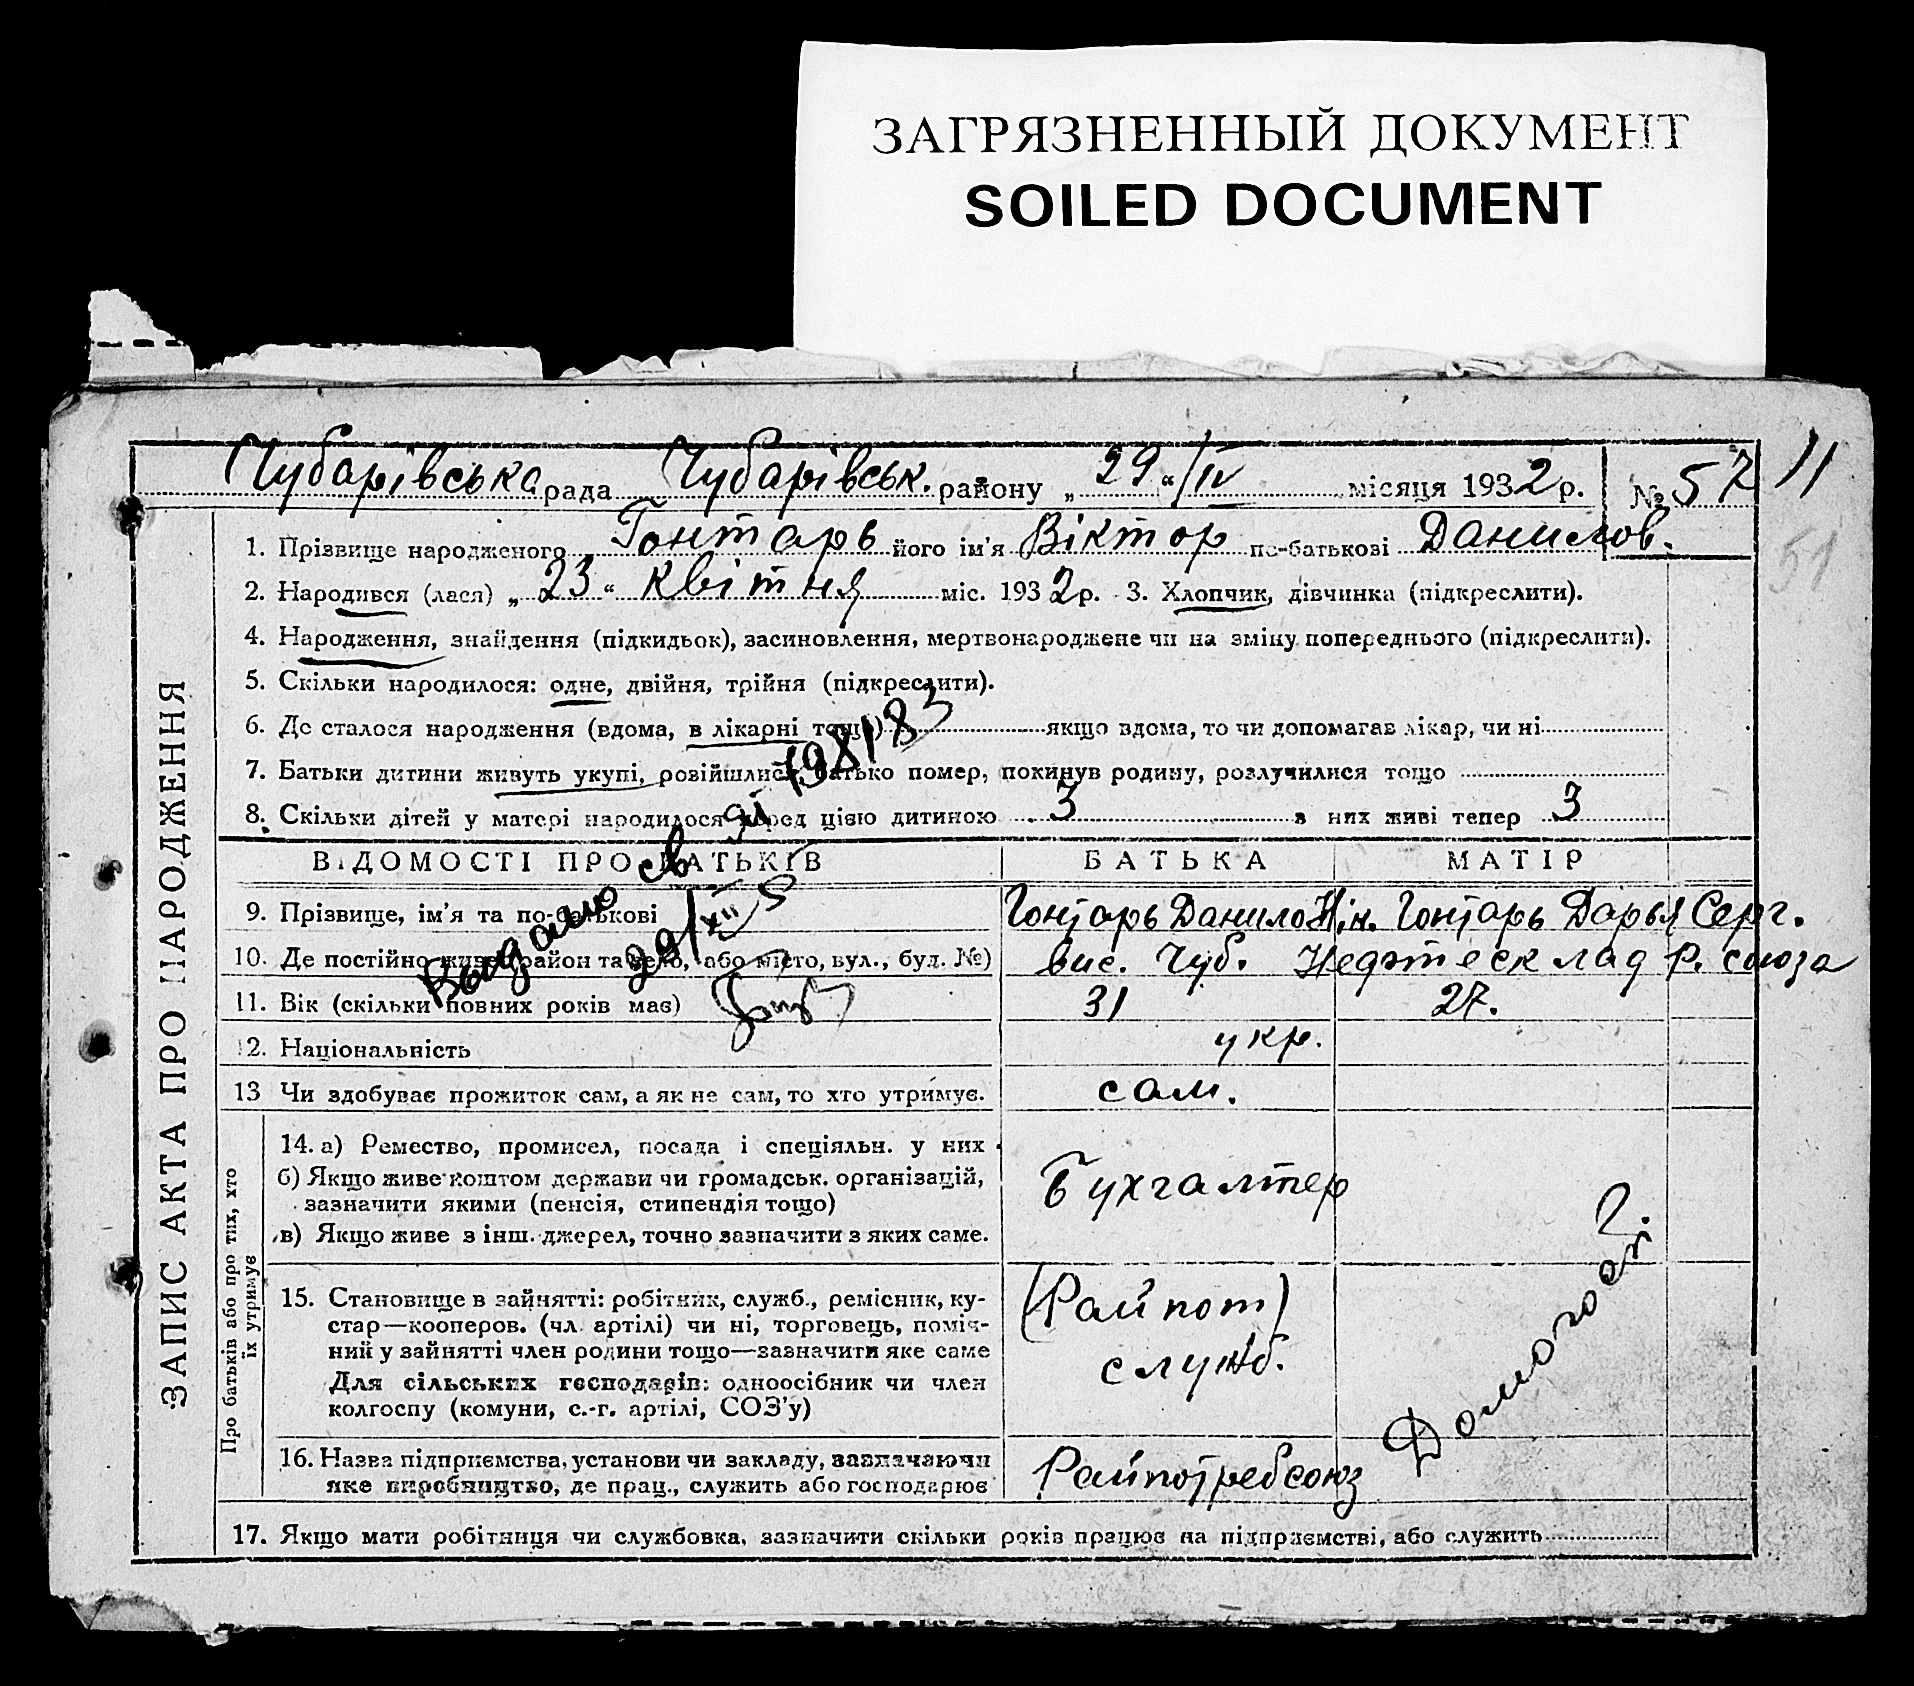 ЗАГРЯЗНЕННЫЙ ДОКУМЕНТ
SOILED DOCUMENT
Чубарівська рада Чубарівськ. району „ 29 “ /IV місяця 1932 р. № 57 11
51
1. Прізвище народженого Гонтарь його ім'я Віктор по-батькові Данилов.
2. Народився (лася) „ 23 “ квітня міс. 1932 р. 3. Хлопчик, дівчинка (підкреслити).
4. Народження, знайдення (підкидьок), засиновлення, мертвонароджене чи на зміну попереднього (підкреслити).
5. Скільки народилося: одне, двійня, трійня (підкреслити).
6. Де сталося народження (вдома, в лікарні тощо) якщо вдома, то чи допомагав лікар, чи ні
7. Батьки дитини живуть укупі, розійшлися, батько помер, покинув родину, розлучилися тощо
8. Скільки дітей у матері народилося перед цією дитиною 3 з них живі тепер 3
ВІДОМОСТІ ПРО БАТЬКІВ БАТЬКА МАТІР
9. Прізвище, ім'я та по-батькові Гонтарь Данило Нік. Гонтарь Дарья Серг.
10. Де постійно живе (район та село, або місто, вул., буд. №) вис. Чуб. Нефтесклад Р. союза
11. Вік (скільки повних років має) 31 27.
12. Національність укр.
13 Чи здобуває прожиток сам, а як не сам, то хто утримує. сам.
14. а) Ремество, промисел, посада і спеціяльн. у них
б) Якщо живе коштом держави чи громадськ. організацій,
зазначити якими (пенсія, стипендія тощо)
в) Якщо живе з інш. джерел, точно зазначити з яких саме.
Бухгалтер
15. Становище в зайнятті: робітник, служб., ремісник, ку-
стар—кооперов. (чл. артілі) чи ні, торговець, поміч-
ний у зайнятті член родини тощо—зазначити яке саме
Для сільських господарів: одноосібник чи член
колгоспу (комуни, с.-г. артілі, СОЗ'у)
(Райпот)
служб.
16. Назва підприємства, установи чи закладу, зазначаючи
яке виробництво, де прац., служить або господарює
Райпотребсоюз
17. Якщо мати робітниця чи службовка, зазначити скільки років працює на підприємстві, або служить
ЗАПИС АКТА ПРО НАРОДЖЕННЯ
Про батьків або про тих, хто
їх утримує
Видано св
198183
29/XII